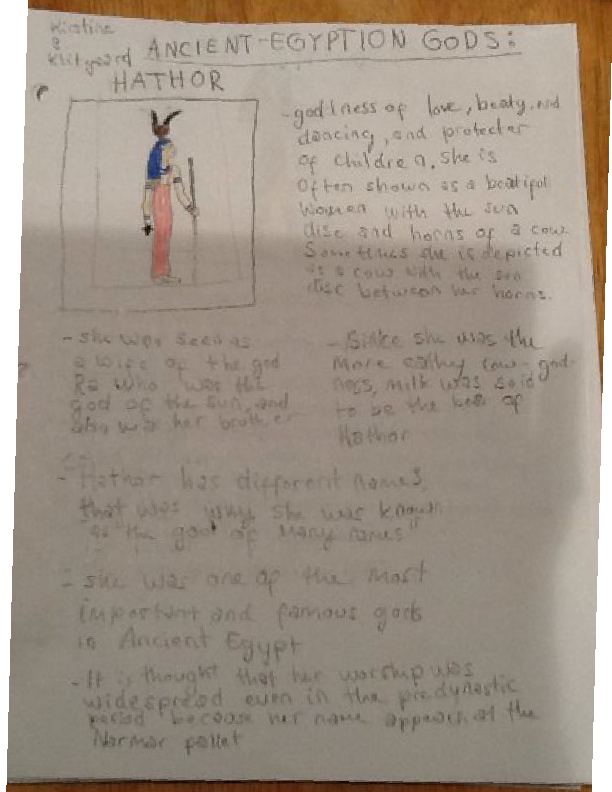 Kirstine
&
Klitgaard
ANCIENT-EGYPTION GODS:
HATHOR
- godlness of love, beaty, and
dancing, and protecter
of children. She is
often shown as a beatiful
women with the sun
disc and horns of a cow.
Sometimes she is depicted
as a cow with the sun
disc between her horns.
- she was seen as
a wife of the god
Ra who was the
god of the sun, and
also was her brother
- Sinke she was the
more eathey cow-god-
ness, milk was said
to be the beer of
Hathor
- Hathor has different names,
that was why she was known
as "the god of Many names"
- she was one of the most
important and famous gods
in Ancient Egypt
- It is thought that her worship was
widespread even in the predynastic
period because her name appears at the
Narmar pallet